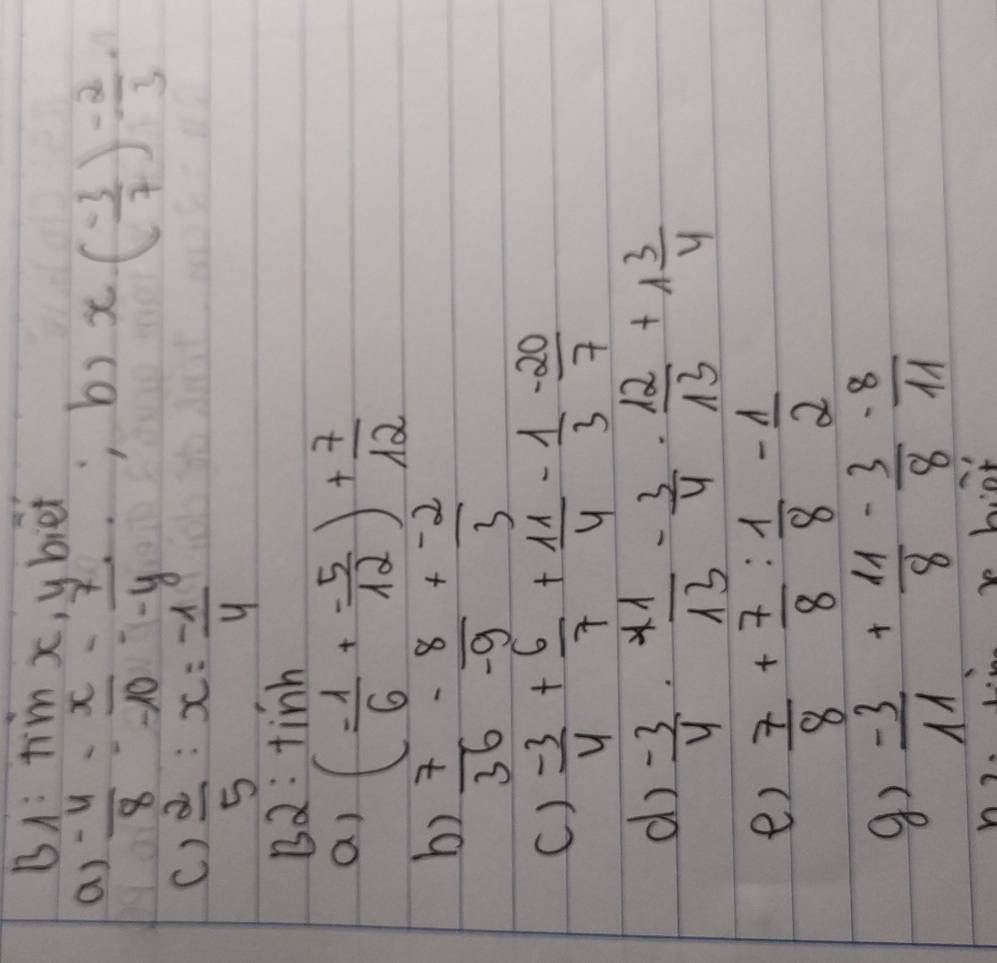 B1: tìm x, y biết
a) -4/8 = x/-10 = -7/-y ; b) x - (-3/7) = -2/3
c) 2/5 : x = -1/4
B2: tính
a) (-1/6 + -5/12) + 7/12
b) 7/36 - 8/-9 + -2/3
c) -3/4 + 6/7 + 11/4 - 1/3 - 20/7
d) -3/4 . 11/13 - 3/4 . 12/13 + 1 3/4
e) 7/8 + 7/8 : 1/8 - 1/2
g) -3/11 + 11/8 - 3/8 . 8/11